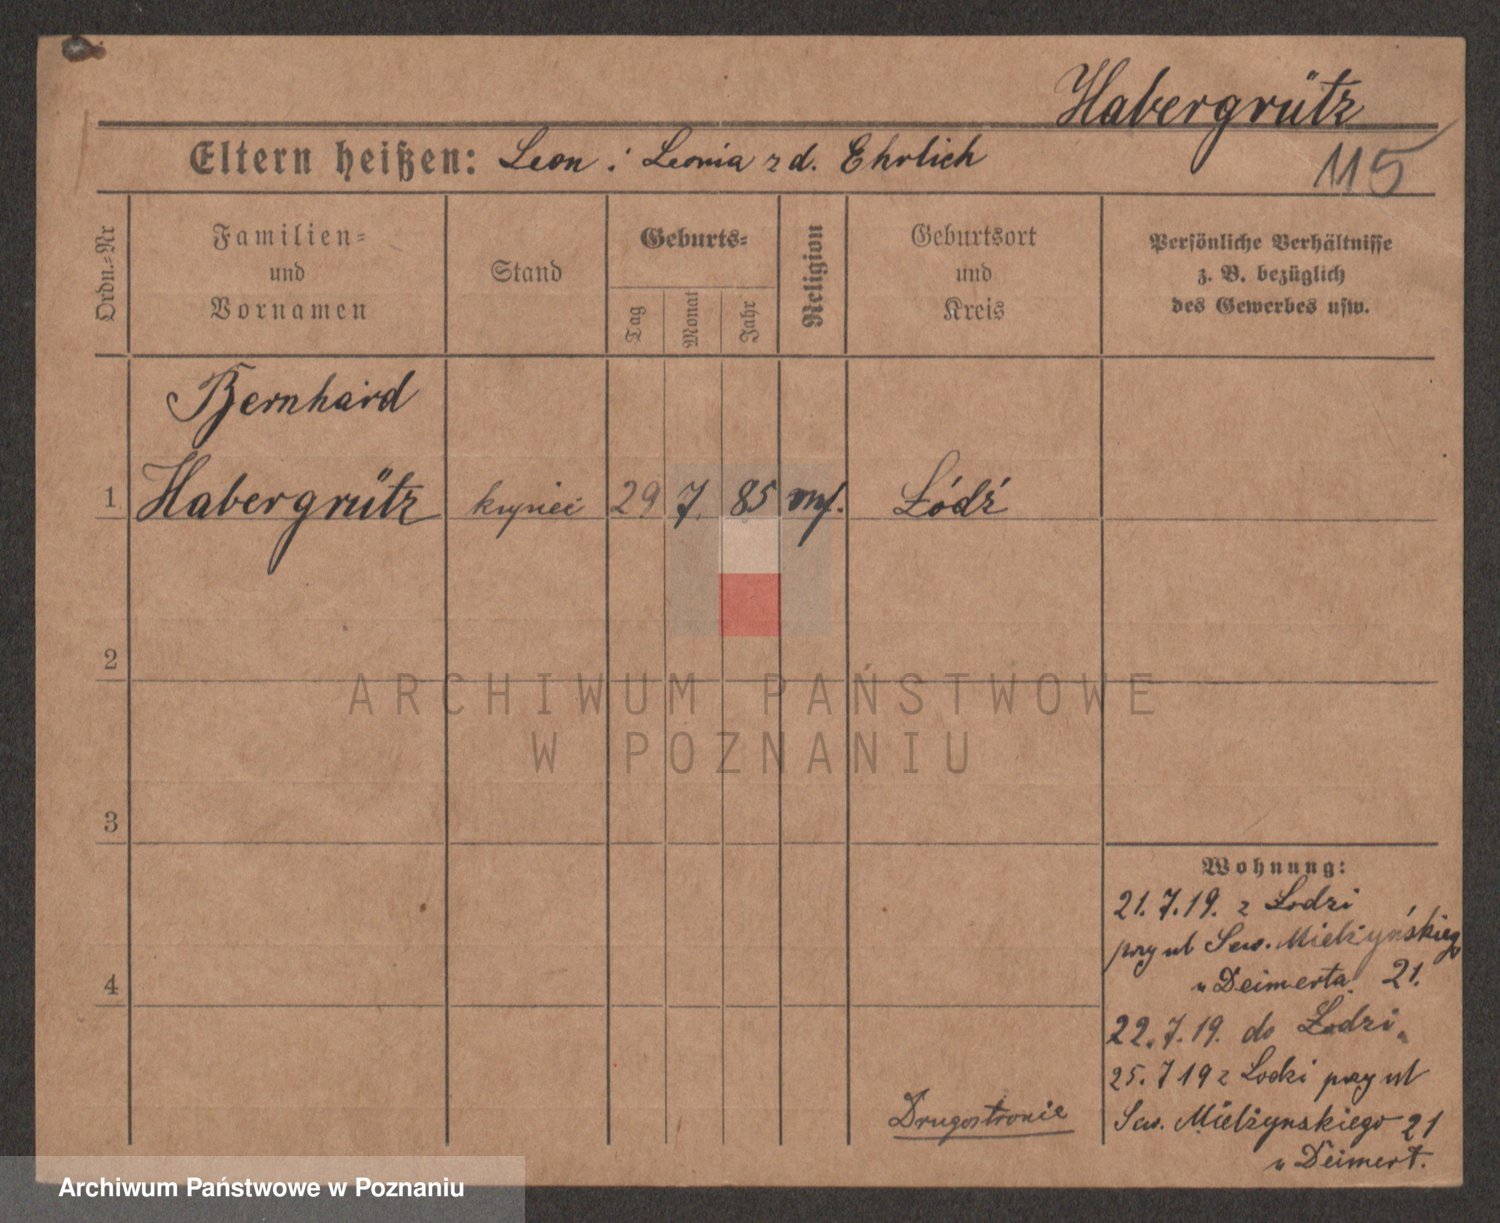 Habergrütz
115
Eltern heißen: Leon i Leonia z d. Ehrlich
Ordn.-Nr
Familien-
und
Vornamen
Stand
Geburts-
Tag
Monat
Jahr
Religion
Geburtsort
und
Kreis
Persönliche Verhältnisse
z. B. bezüglich
des Gewerbes usw.
Bernhard
1 Habergrütz kupiec 29 7. 85 Łódź
2
ARCHIWUM PAŃSTWOWE
W POZNANIU
3
4
Wohnung:
21.7.19. z Łodzi
przy ul Sew. Mielżyńskiego
u Deimerta 21.
22.7.19. do Łodzi
25.7 19 z Lodzi przy ul
Sew. Mielżynskiego 21
u Deimert.
Drugostronie
Archiwum Państwowe w Poznaniu